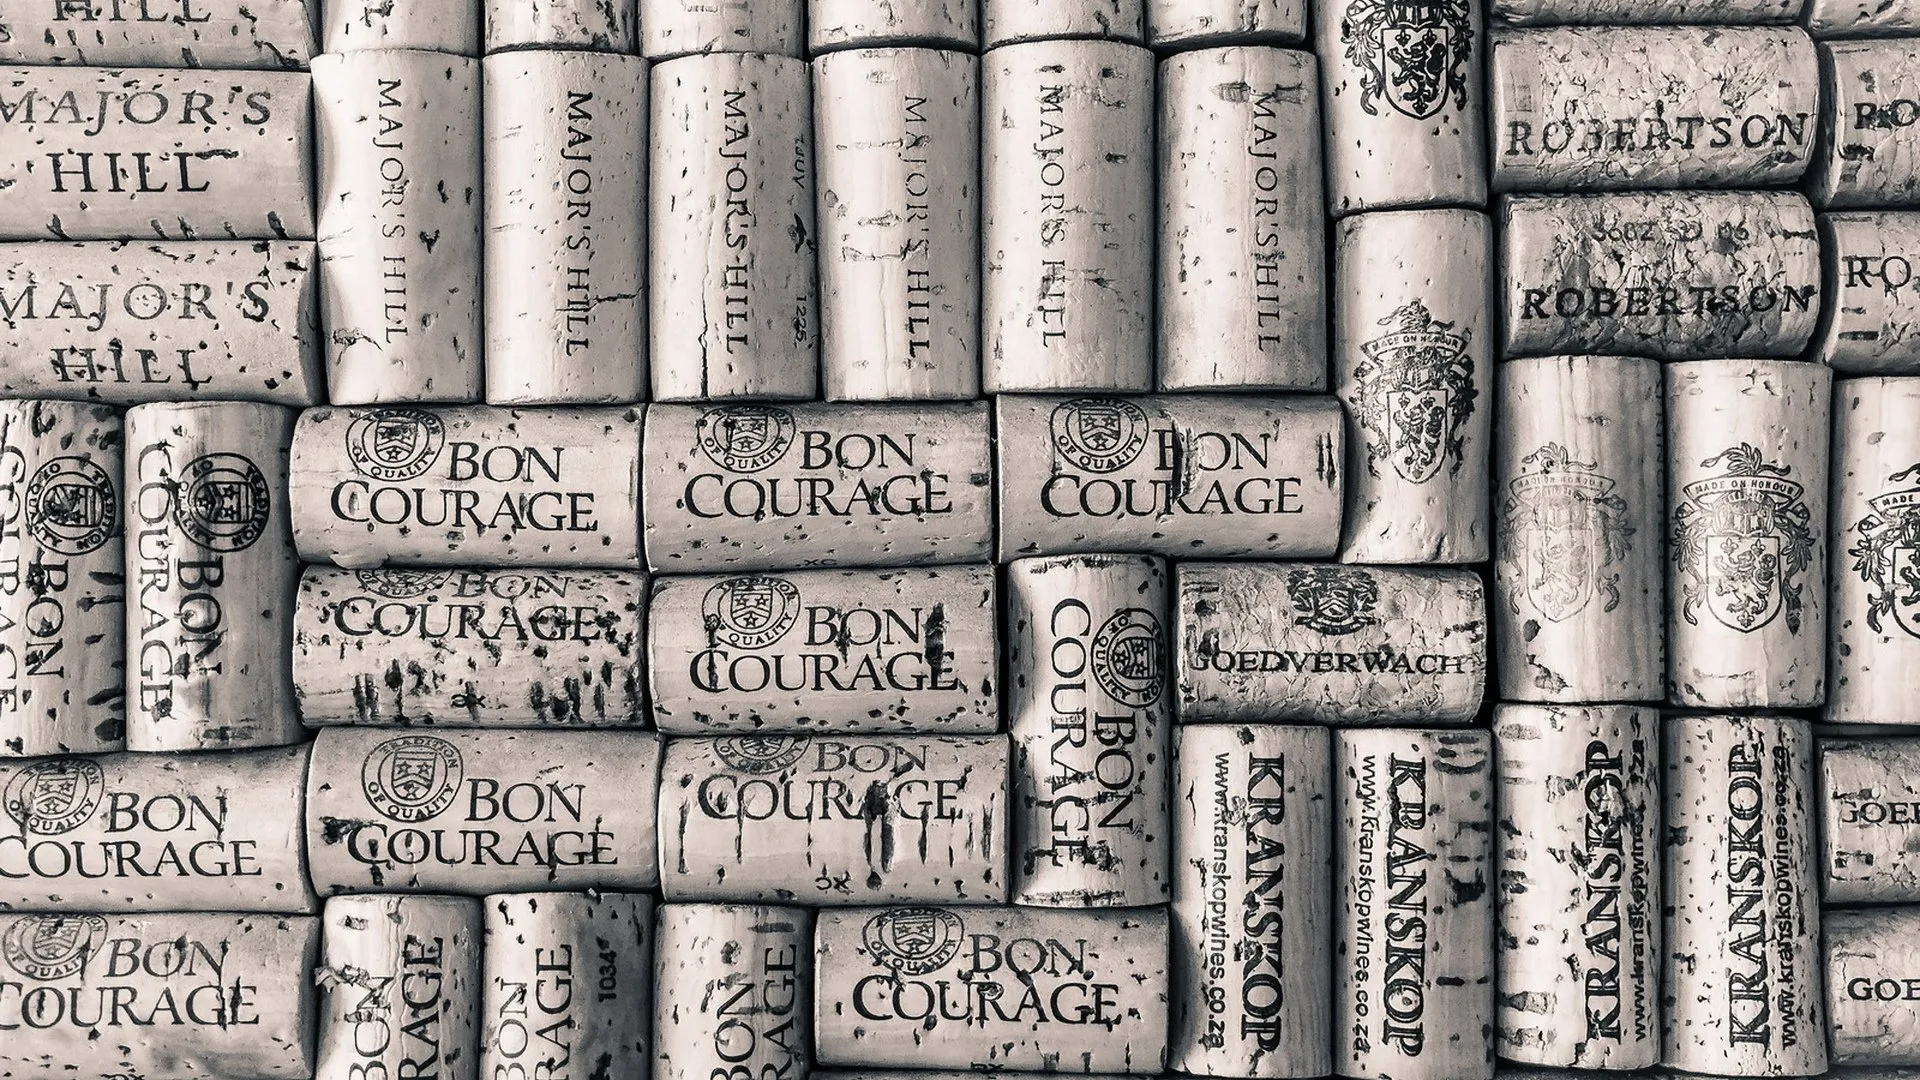 HILL
MAJOR'S
HILL
MAJOR'S
HILL
MAJOR'S HILL
MAJOR'S HILL
MAJOR'S HILL
1225
MAJOR'S HILL
MAJOR'S HILL
MAJOR'S HILL
ROBERTSON
RO
3602 D 06
ROBERTSON
RO
MADE ON HONOUR
MADE ON HONOUR
MADE ON HONOUR
MADE
TRADITION OF QUALITY
BON
COURAGE
TRADITION OF QUALITY
BON
COURAGE
TRADITION OF QUALITY
BON
COURAGE
TRADITION OF QUALITY
BON
COURAGE
TRADITION OF QUALITY
BON
COURAGE
BON
COURAGE
TRADITION OF QUALITY
BON
COURAGE
TRADITION OF QUALITY
BON
COURAGE
GOEDVERWACH
QUALITY
BON
COURAGE
TRADITION OF QUALITY
BON
COURAGE
BON
COURAGE
KRANSKOP
www.kranskopwines.co.za
KRANSKOP
www.kranskopwines.co.za
KRANSKOP
www.kranskopwines.za
KRANSKOP
www.kranskopwines.co.za
GOE
QUALITY
BON
COURAGE
BON
RAGE
BON
RAGE
1034
BON
RAGE
TRADITION OF QUALITY
BON
COURAGE
GOE